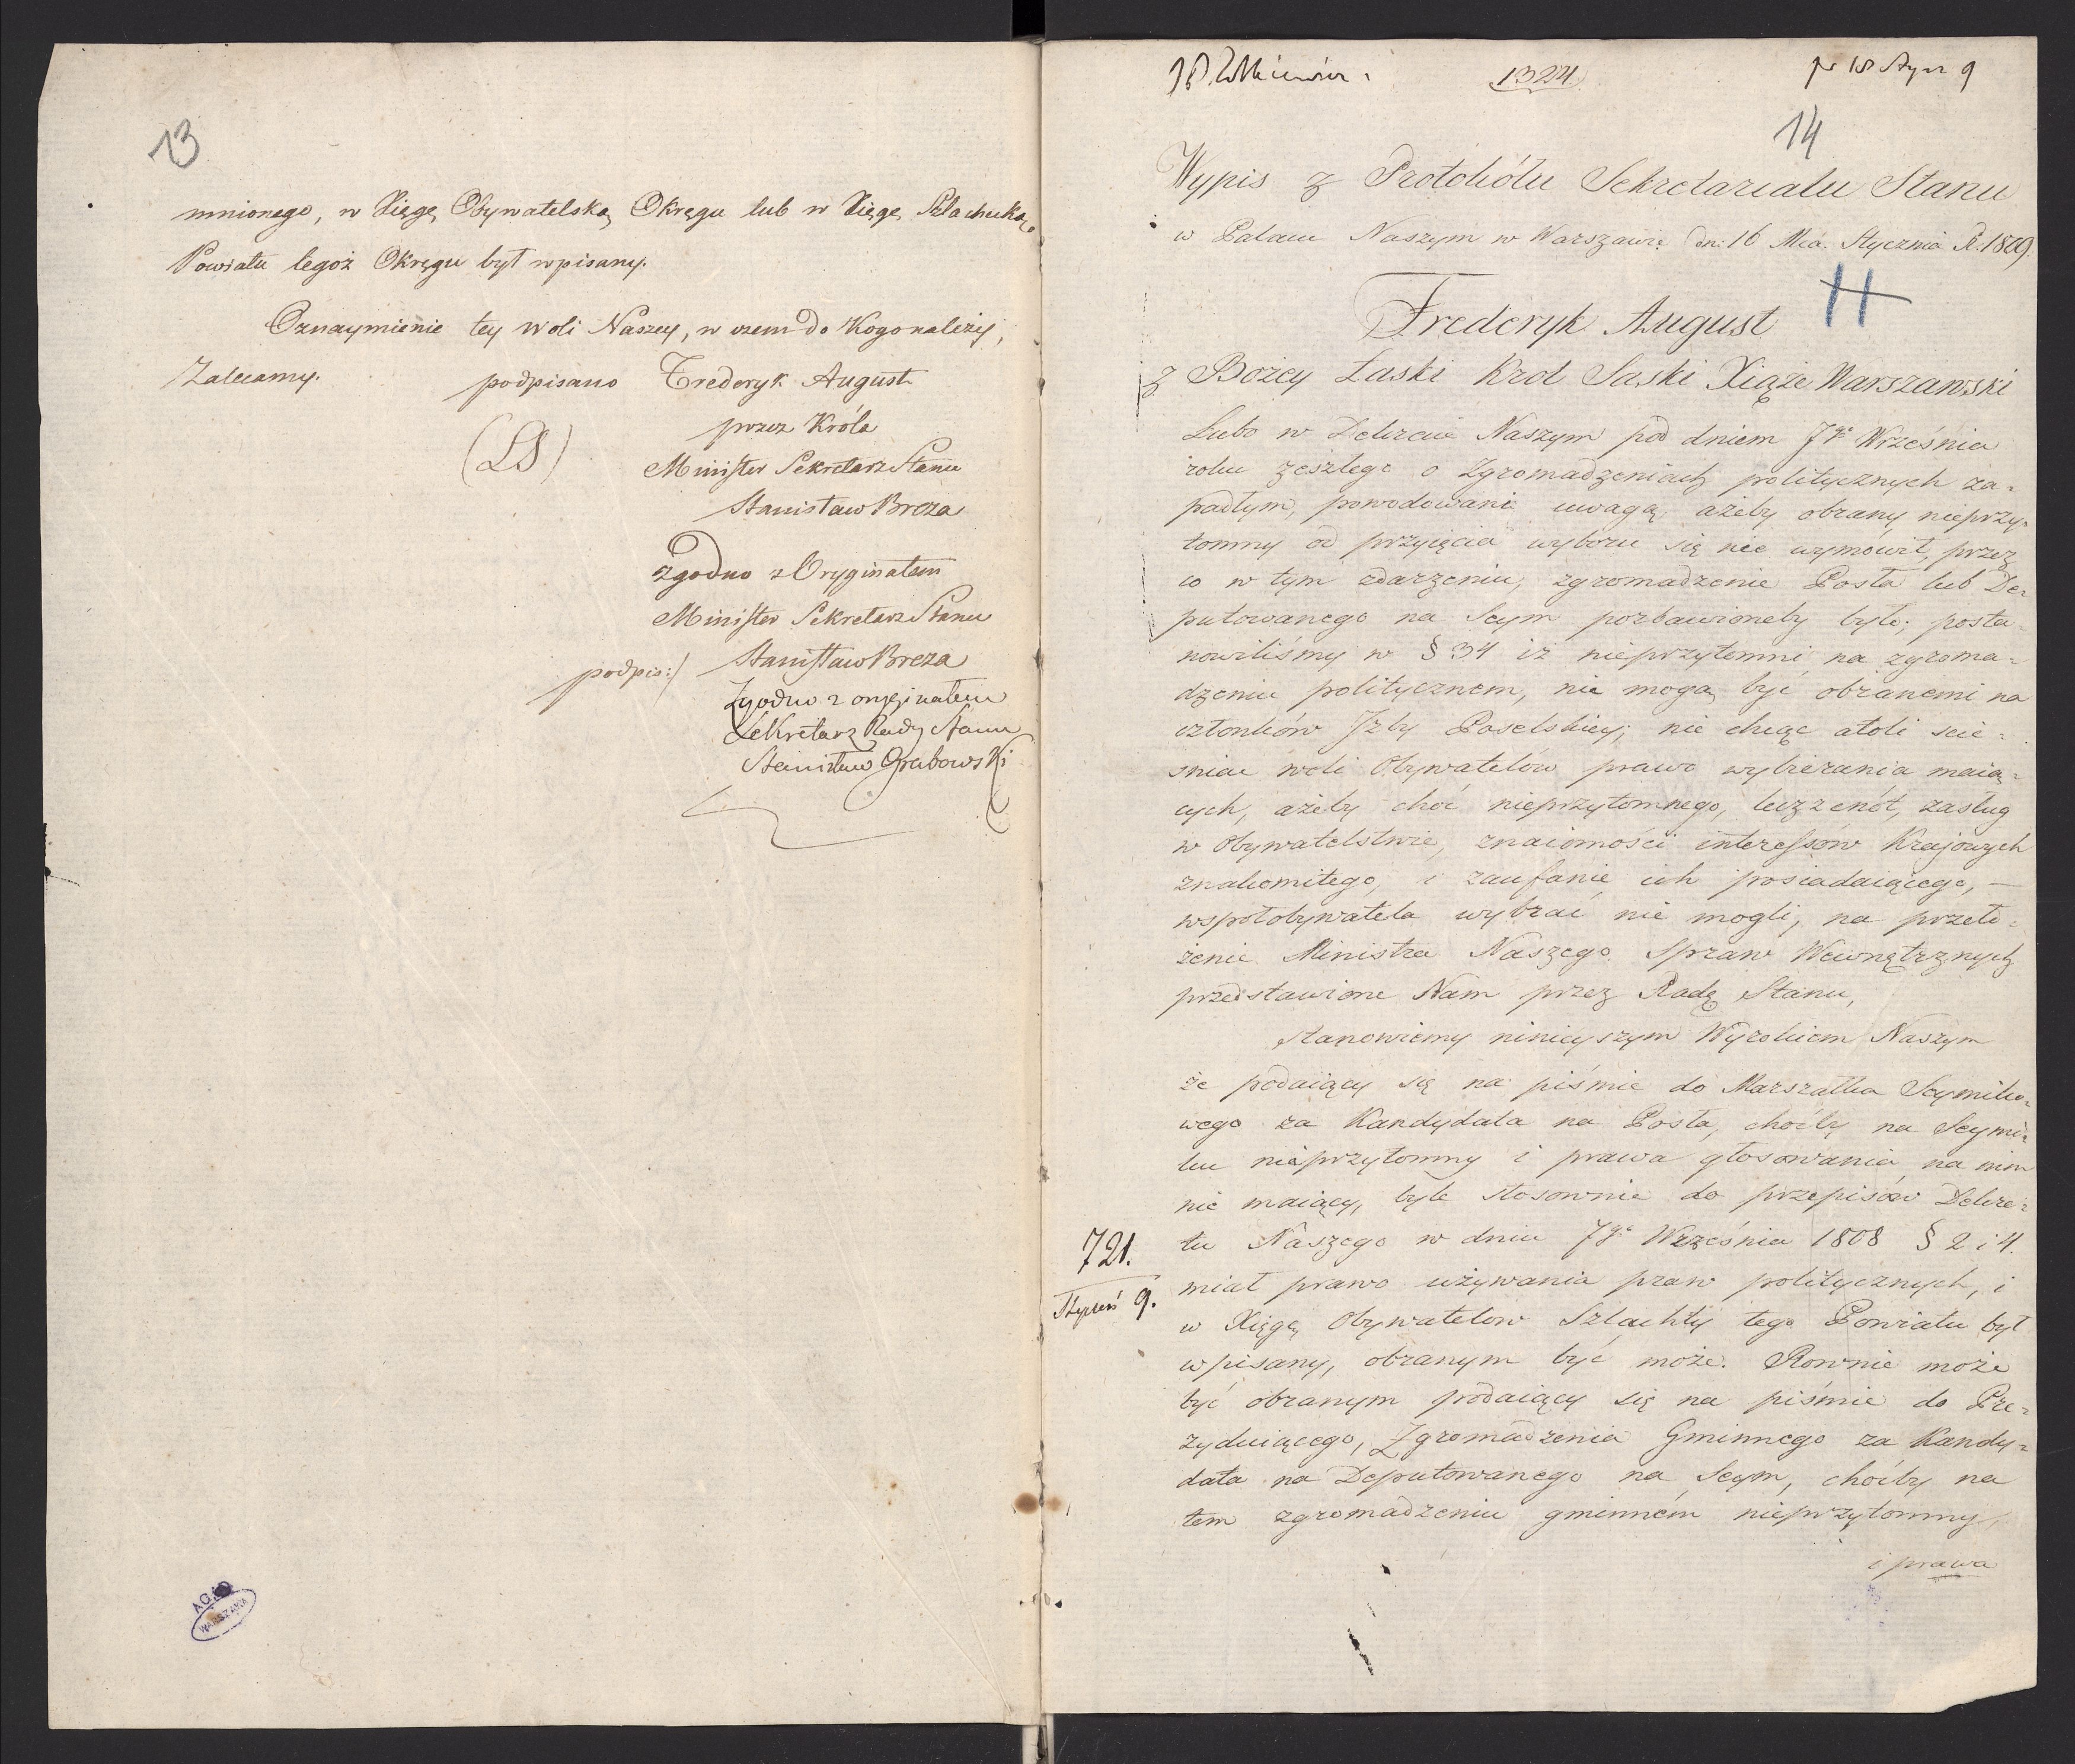 13
mnionego, w Xięgę Obywatelską Okręgu lub w Xięgę Szlachecką
Powiatu tegoż Okręgu był wpisany.
Oznaymienie tey woli Naszey, w czem do Kogo należy,
Zalecamy. podpisano Frederyk August
przez Króla
(LS) Minister Sekretarz Stanu
Stanisław Breza
Zgodno z Oryginałem
Minister Sekretarz Stanu
podpis:/ Stanisław Breza
Zgodno z oryginałem
Sekretarz Rady Stanu
Stanisław Grabowski
AGAD
WARSZAWA
1324. pr 18 Stycz 9
14
Wypis z Protokółu Sekretariatu Stanu
w Pałacu Naszym w Warszawie dn: 16 Mca. Stycznia R. 1809.
H
Frederyk August
z Bożey Łaski Krol Saski Xiąże Warszawski
Lubo w Dekrecie Naszym pod dniem 7go Września
roku zeszłego o Zgromadzeniach politycznych za=
padłym, powodowani uwagą ażeby obrany nieprzy=
tomny od przyięcia wyboru się nie wymówił, przez
co w tym zdarzeniu, zgromadzenie Posła lub De=
putowanego na Seym pozbawioneby było; posta=
nowiliśmy w § 34 iż nieprzytomni na zgroma=
dzeniu politycznem, nie mogą być obranemi na
członków Jzby Poselskiey; nie chcąc atoli ście=
śniać woli Obywatelów prawo wybierania maią=
cych, ażeby choć nieprzytomnego, lecz z cnót, zasług
w Obywatelstwie, znaiomości interessów Krajowych
znakomitego, i zaufanie ich posiadaiącego, —
wspołobywatela wybrać nie mogli, na przeło=
żenie Ministra Naszego Spraw Wewnętrznych
przedstawione Nam przez Radę Stanu,
stanowiemy ninieyszym Wyrokiem Naszym
że podaiący się na piśmie do Marszałka Seymiko=
wego za Kandydata na Posła, choćby na Seymi=
ku nieprzytomny i prawa głosowania na nim
nie maiący, byle stosownie do przepisów Dekre=
tu Naszego w dniu 7go Września 1808 § 2 i 4.
721.
Styczeń 9.
miał prawo używania praw politycznych, i
w Xięgę Obywatelow Szlachty tego Powiatu był
wpisany, obranym być może. Rownie może
być obranym podaiący się na piśmie do Pre=
zyduiącego, Zgromadzenia Gminnego za Kandy=
data na Deputowanego na Seym, choćby na
tem zgromadzeniu gminném nieprzytomny,
i prawa